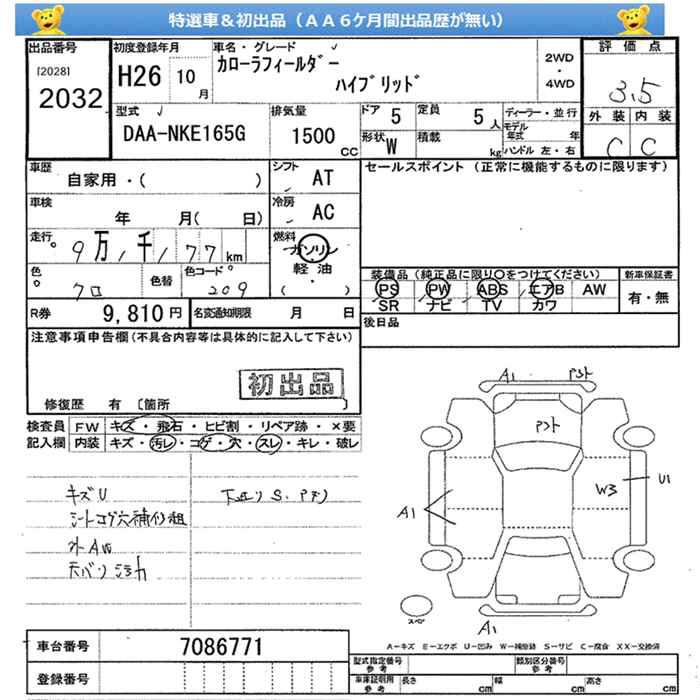 特選車＆初出品（ＡＡ６ケ月間出品歴が無い）
出品番号 初度登録年月 車名・グレード 評価点
[2028]
2032
H26 10 月
カローラフィールダー
ハイブリッド
2WD
・
4WD
3.5
外装 内装
C C
型式 排気量 ドア 5 定員 5 人 ディーラー・並行
DAA-NKE165G 1500 CC 形状 W 積載 kg モデル年式 年
ハンドル 左・右
車歴 シフト セールスポイント（正常に機能するものに限ります）
自家用・( ) AT
車検 冷房
年 月( 日) AC
走行 燃料
9万1千177km ガソリン
軽油
( ・ )
色 色替 色コード
クロ 209
装備品（純正品に限り○をつけてください） 新車保証書
PS PW ABS エアB AW 有・無
SR ナビ TV カワ
R券 9,810 円 名変通知期限 月 日
後日品
注意事項申告欄(不具合内容等は具体的に記入して下さい)
初出品
修復歴 有 〔箇所 〕
検査員 FW キズ・飛石・ヒビ割・リペア跡・×要
記入欄 内装 キズ・汚レ・コゲ・穴・スレ・キレ・破レ
キズU
シートコゲ穴補修粗
天バリ
A1 Pｽﾄ
Pｽﾄ
W3 U1
A1
A1
スペア
A−キズ E−エクボ U−凹み W−補修跡 S−サビ C−腐食 XX−交換済
車台番号 7086771
登録番号
型式指定番号 参考 類別区分番号 参考
車庫証明用 参考 長さ cm 幅 cm 高さ cm